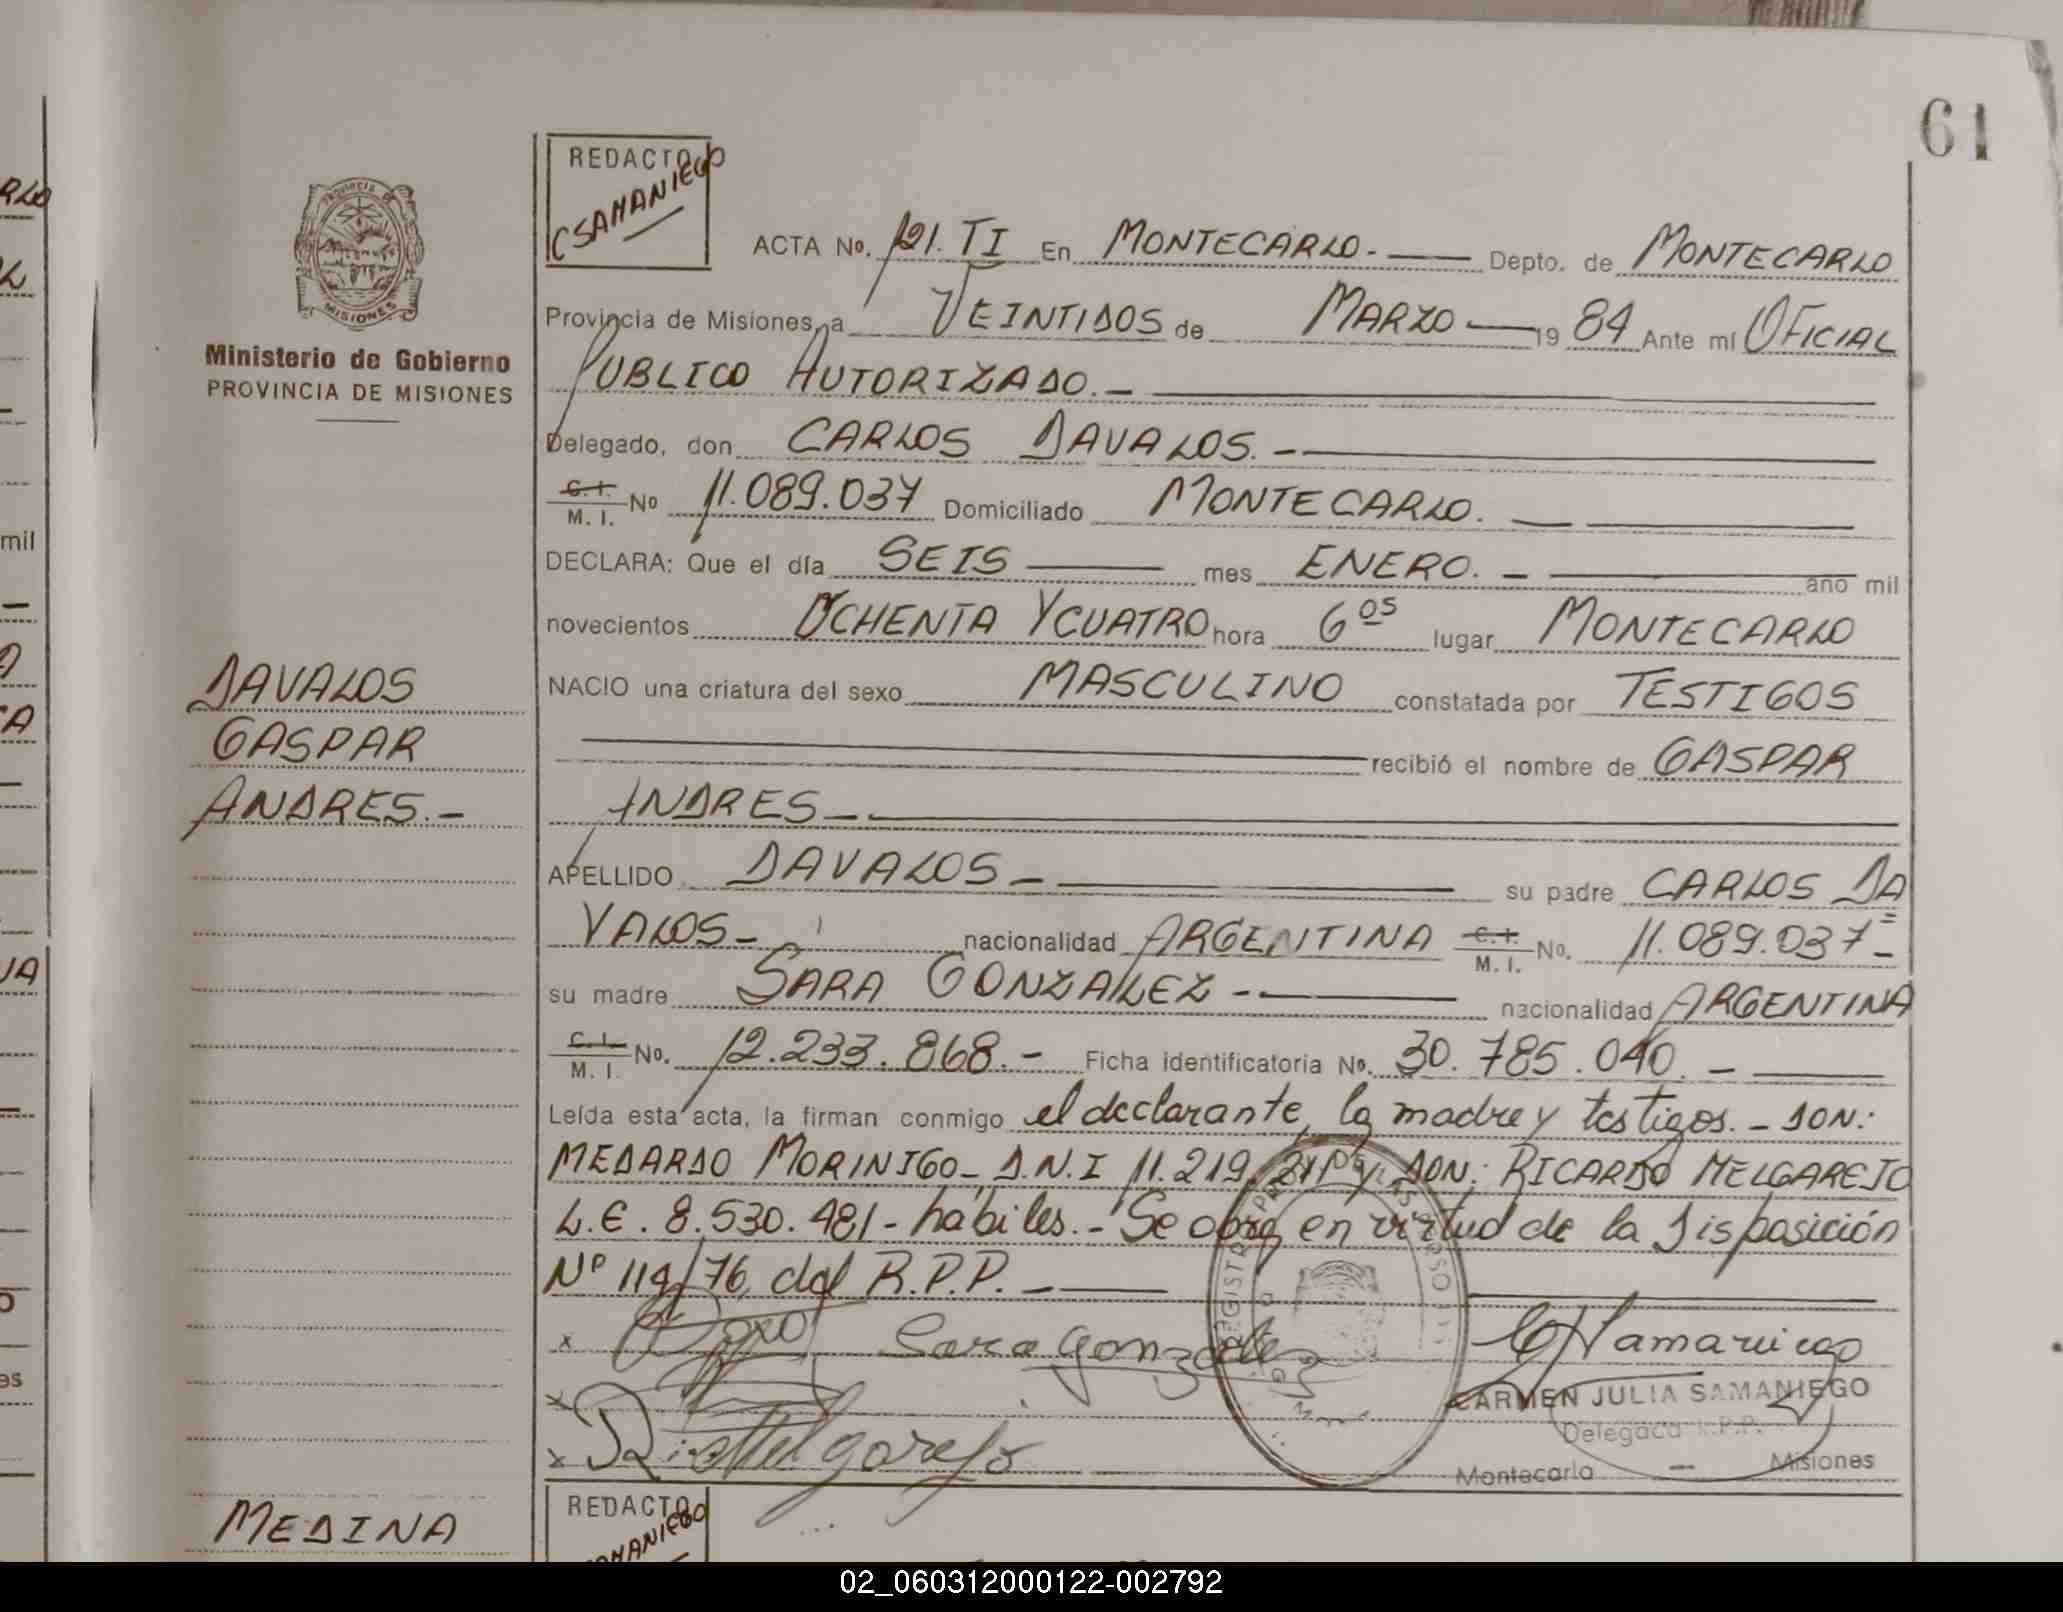 61
REDACTO
CSAMANIEGO
Provincia de
MISIONES
Ministerio de Gobierno
PROVINCIA DE MISIONES
ACTA No. 121. TI En MONTECARLO.- Depto. de MONTECARLO
Provincia de Misiones, a VEINTIDOS de MARZO 19 84 Ante mí OFICIAL
PUBLICO AUTORIZADO.-
Delegado, don CARLOS DAVALOS.-
C. I. No 11.089.037 Domiciliado MONTECARLO.
M. I.
DECLARA: Que el día SEIS mes ENERO.- año mil
novecientos OCHENTA Y CUATRO hora 6 os lugar MONTECARLO
NACIO una criatura del sexo MASCULINO constatada por TESTIGOS
recibió el nombre de GASPAR
ANDRES.-
APELLIDO DAVALOS- su padre CARLOS DA
VALOS- nacionalidad ARGENTINA C. I. No. 11.089.037-
M. I.
su madre SARA GONZALEZ- nacionalidad ARGENTINA
C. I. No. 12.233.868.- Ficha identificatoria No. 30.785.040.-
M. I.
Leída esta acta, la firman conmigo el declarante, la madre y testigos.- DON:
MEDARDO MORINIGO- D.N.I 11.219. y DON: RICARDO MELGAREJO
L.E. 8.530.481- habiles.- Se obra en virtud de la Disposición
Nº 114/76, del R.P.P.-
x Sara Gonzalez
x
x Ric Melgarejo
CARMEN JULIA SAMANIEGO
Delegada R.P.P.
Montecarlo - Misiones
DAVALOS
GASPAR
ANDRES.-
MEDINA
REDACTO
SAMANIEGO
mil
02_060312000122-002792